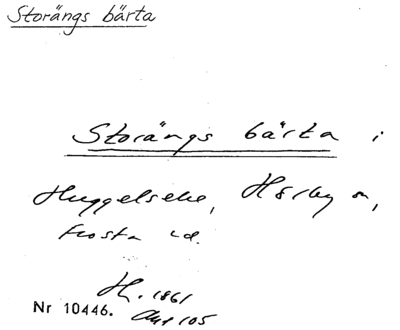 Storängs bärta
Storängs bärta i
Huggelseke, Hörby sn,
Frosta hd.
H. 1861
Nr 10446. Akt 105